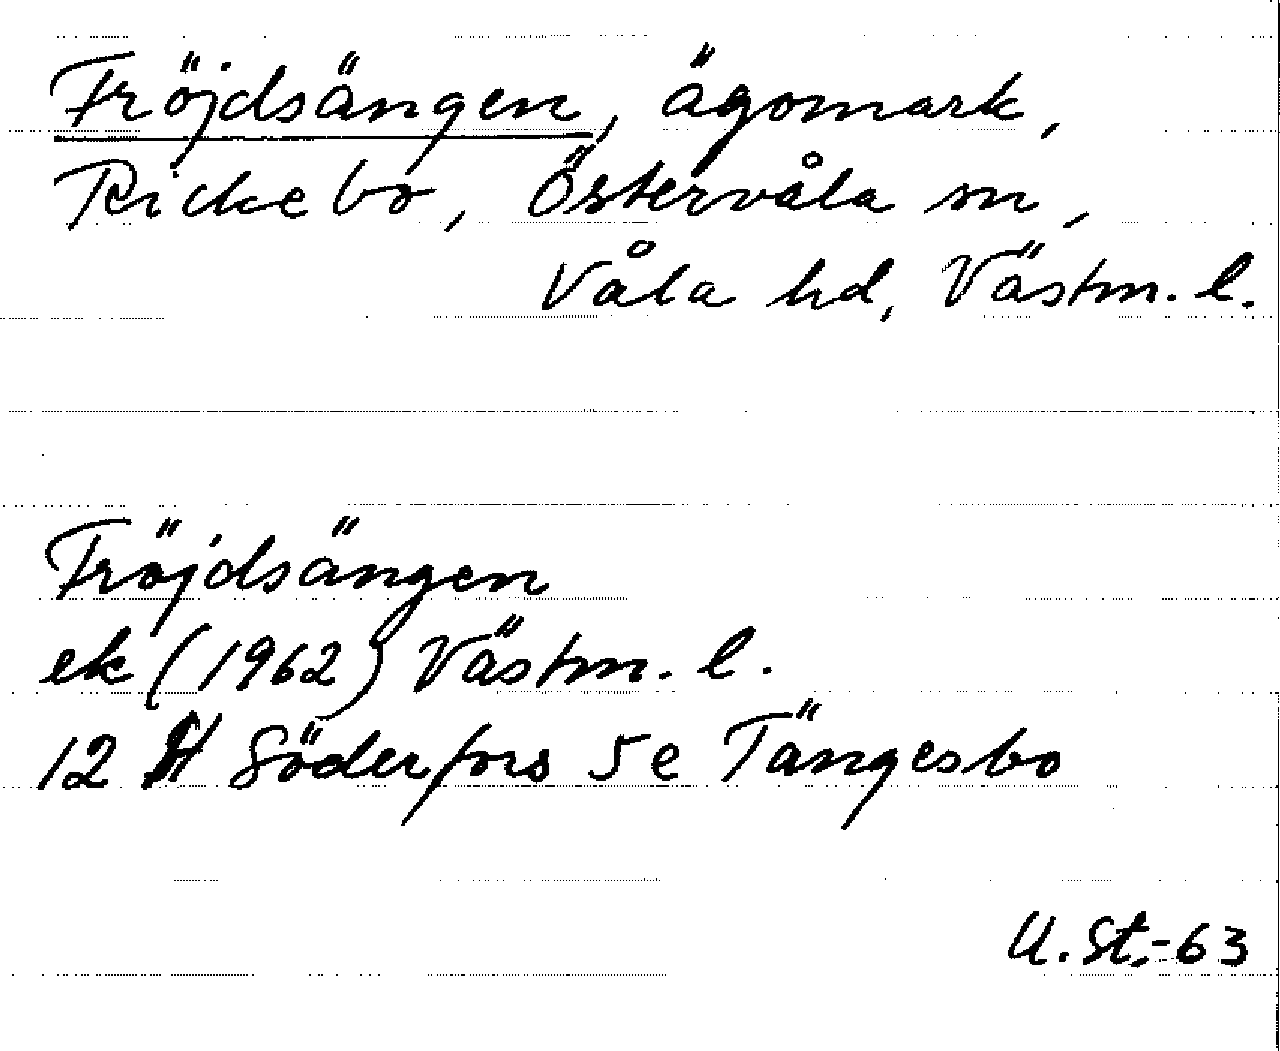 Fröjdsängen, ägomark,
Rickebo, Östervåla sn,
Våla hd, Västm. l.
Fröjdsängen
ek (1962) Västm. l.
12 H Söderfors 5e Tängesbo
U. St.-63